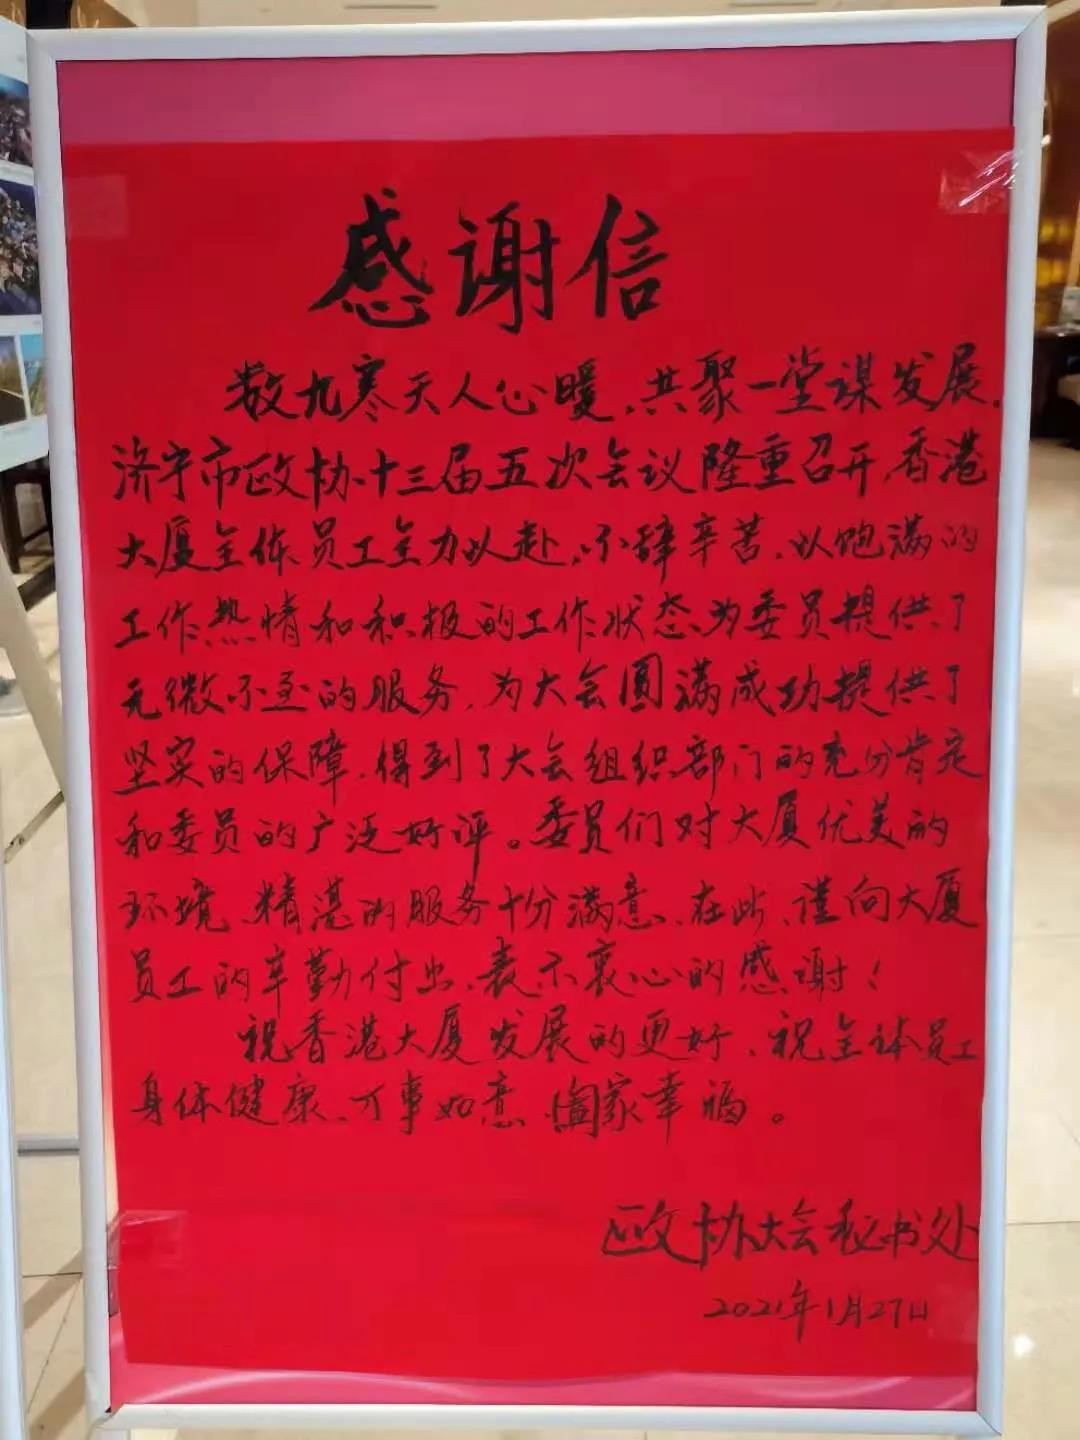 感谢信
数九寒天人心暖，共聚一堂谋发展。
济宁市政协十三届五次会议隆重召开，香港
大厦全体员工全力以赴，不辞辛苦，以饱满的
工作热情和积极的工作状态为委员提供了
无微不至的服务，为大会圆满成功提供了
坚实的保障，得到了大会组织部门的充分肯定
和委员的广泛好评。委员们对大厦优美的
环境、精湛的服务十分满意，在此，谨向大厦
员工的辛勤付出，表示衷心的感谢！
祝香港大厦发展的更好，祝全体员工
身体健康、万事如意、阖家幸福。
政协大会秘书处
2021年1月27日